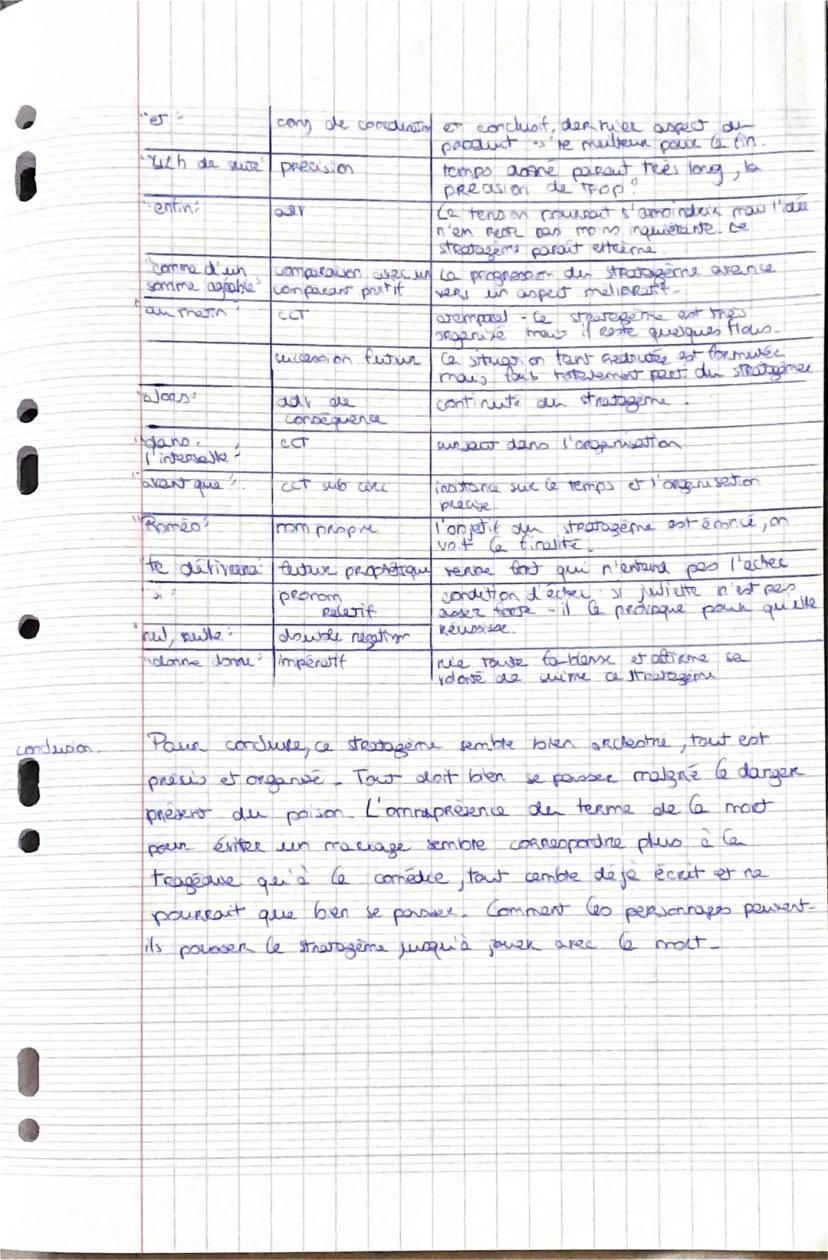 "et" conj de coordination et conclusif, dernier aspect du
produit → "le meilleur pour la fin.
"42h de suite" précision temps donné parait très long, la
précision de trop?
"enfin" adv La tension pourrait s'amoindrir mais l'idée
n'en reste pas moins inquiétante. Le
stratagème parait extrême.
"comme d'un comparaison avec un La progression du stratagème avance
somme agréable" comparant positif vers un aspect mélioratif.
"au matin" CCT atemporel - Le stratagème est très
organisé mais il reste quelques flous.
succession futur La situation tant redoutée est formulée
mais, fait totalement part du stratagème
"alors" adv de continuité du stratagème.
conséquence
"dans CCT dans l'organisation
l'intervalle"
"avant que" cct sub circ insistance sur le temps et l'organisation
précise.
"Roméo" nom propre l'objetif du stratagème est énoncé, on
voit la finalité.
"te délivrera" futur prophétique verbe fort qui n'entend pas l'echec
"si" pronom condition d'échec si juliette n'est pas
relatif assez forte - il la provoque pour qu'elle
réussisse.
nul, nulle" double négation
"donne donne" impératif nie toute faiblesse et affirme sa
volonté de suivre ce stratagème
conclusion. Pour conclure, ce stratagème semble bien orchestré, tout est
précis et organisé. Tout doit bien se passer malgré le danger
présent du poison. L'omniprésence du terme de la mort
pour éviter un mariage semble correspondre plus à la
tragédie qu'à la comédie, tout semble déjà écrit et ne
pourrait que bien se passer. Comment les personnages peuvent-
ils pousser le stratagème jusqu'à jouer avec la mort.